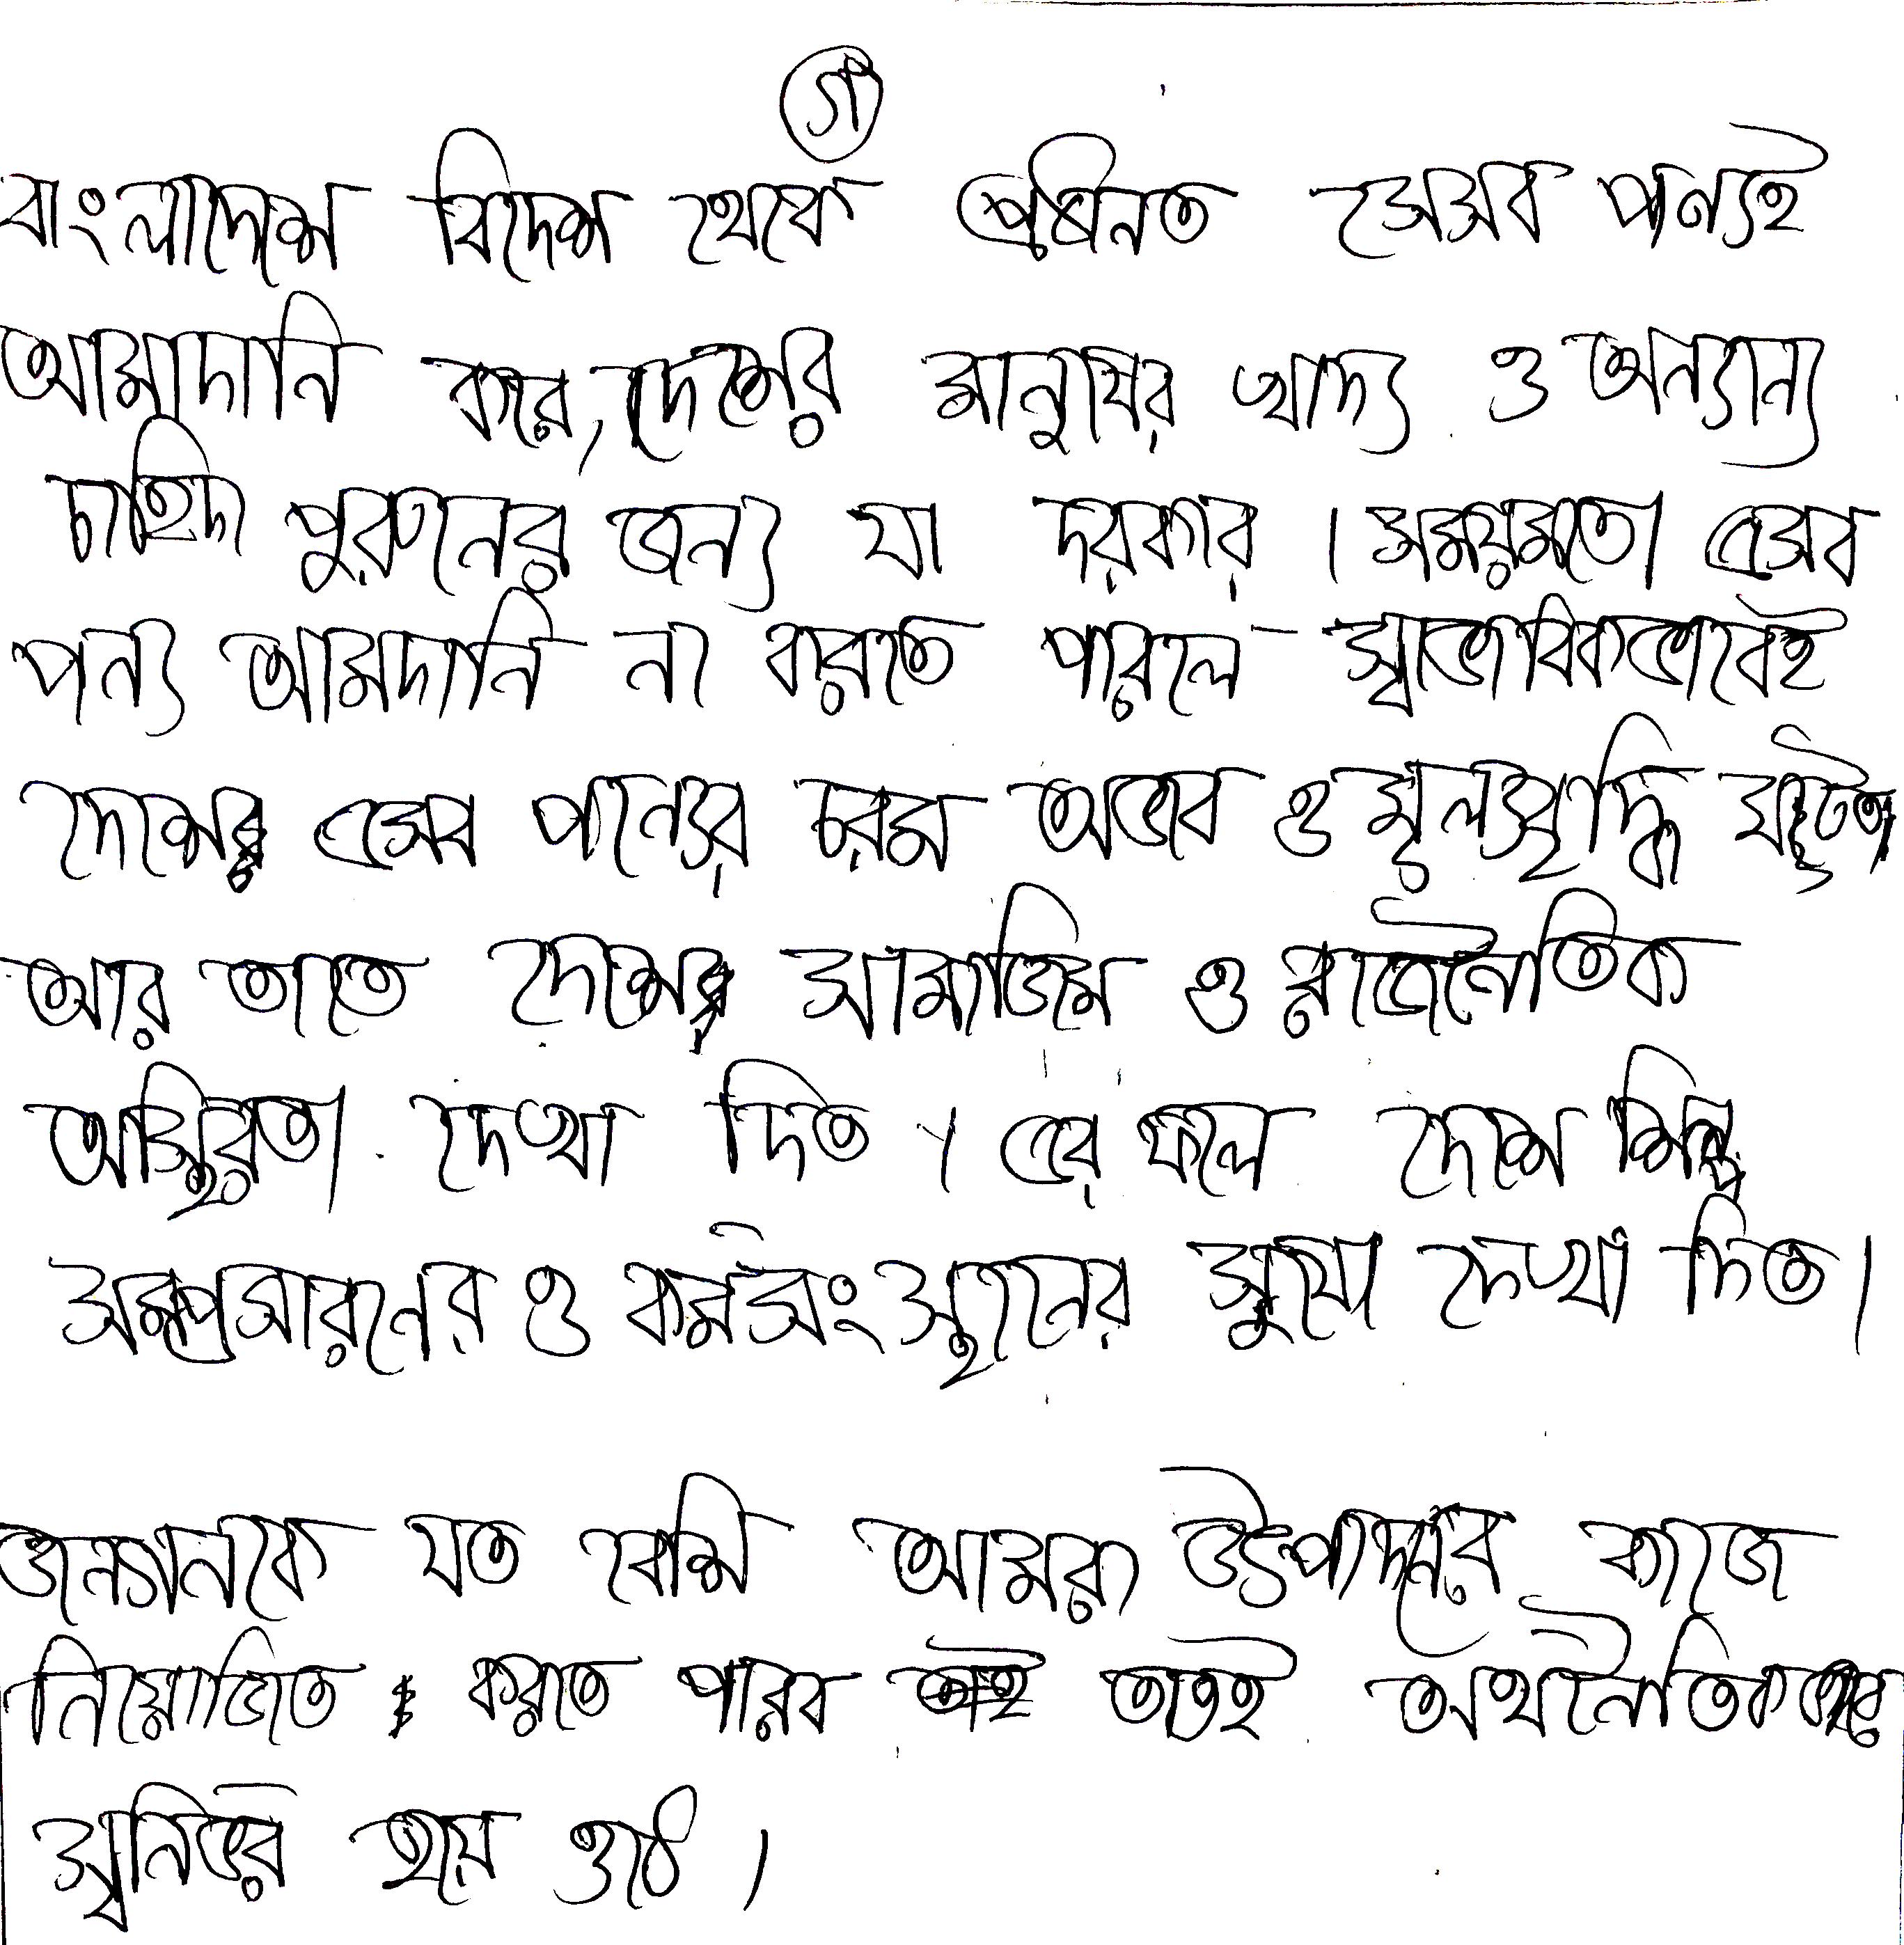 গ
বাংলাদেশ বিদেশ থেকে প্রধানত সেসব পন্যই
আমাদানি করে, দেশের মানুষের খাদ্য ও অন্যান্য
চাহিদা পুরণের জন্য যা দরকার। সময়মতো এসব
পন্য আমদানি না করতে পারলে স্বাভাবিকভাবেই
দেশের এসব পন্যের চরম অভাব ও মূল্যবৃদ্ধি ঘটতো
আর তাতে দেশের সামাজিক ও রাজনৈতিক
অস্থিরতা দেখা দিত। এর ফলে দেশে শিল্প
সম্প্রসারনের ও কর্মসংস্থানের সুযোগ দেখা দিত।
জনগনকে যত বেশি আমরা উৎপাদনের কাজে
নিয়োজিত করতে পারব ততই অর্থনৈতিকভাবে
স্বনির্ভর হয়ে ওঠে।